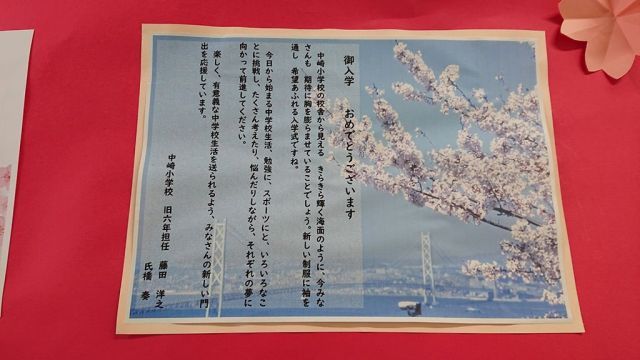 御入学　おめでとうございます
中崎小学校の校舎から見える　きらきら輝く海面のように、今みな
さんも　期待に胸を膨らませていることでしょう。新しい制服に袖を
通し　希望あふれる入学式ですね。
今日から始まる中学校生活、勉強に、スポーツにと、いろいろなこ
とに挑戦し、たくさん考えたり、悩んだりしながら、それぞれの夢に
向かって前進してください。
楽しく、有意義な中学校生活を送られるよう、みなさんの新しい門
出を応援しています。
中崎小学校　旧六年担任　藤田　洋之
氏橋　奏